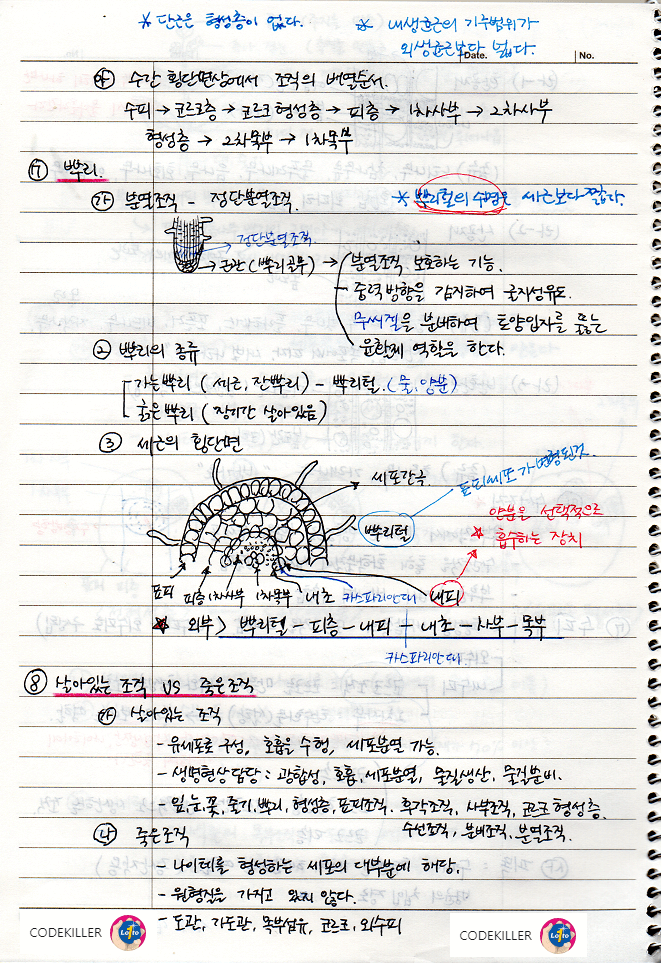 * 단근은 형성층이 없다.
* 내생균근의 기주범위가
외생균근보다 넓다.
Date.
No.
㉵ 수간 횡단면상에서 조직의 배열순서.
수피 → 코르크층 → 코르크 형성층 → 피층 → 1차사부 → 2차사부
형성층 → 2차목부 → 1차목부
⑦ 뿌리.
㉮ 분열조직 - 정단분열조직.
* 뿌리털의 수명은 세근보다 짧다.
정단분열조직.
근관 (뿌리골무) → 분열조직 보호하는 기능.
- 중력방향을 감지하여 굴지성유도.
무씨젤을 분비하여 토양입자를 뚫는
윤활제 역할을 한다.
② 뿌리의 종류
가는뿌리 ( 세근, 잔뿌리 ) - 뿌리털. ( 물, 양분 )
굵은뿌리 ( 장기간 살아있음 )
③ 세근의 횡단면
세포간극
표피세포가 변형된것.
뿌리털
양분을 선택적으로
* 흡수하는 장치
표피 피층 1차사부 1차목부 내초 카스파리안대 내피
* 외부 > 뿌리털 - 피층 - 내피 - 내초 - 사부 - 목부
카스파리안대
⑧ 살아있는 조직 VS 죽은조직
㉮ 살아있는 조직
- 유세포로 구성, 호흡을 수행, 세포분열 가능.
- 생명현상담당 : 광합성, 호흡, 세포분열, 물질생산, 물질분비.
- 잎, 눈, 꽃, 줄기, 뿌리, 형성층, 표피조직, 후각조직, 사부조직, 코르크 형성층.
수선조직, 분비조직, 분열조직.
㉯ 죽은조직
- 나이테를 형성하는 세포의 대부분에 해당.
- 원형질을 가지고 있지 않다.
- 도관, 가도관, 목부섬유, 코르크, 외수피
CODEKILLER
Lotto
CODEKILLER
Lotto